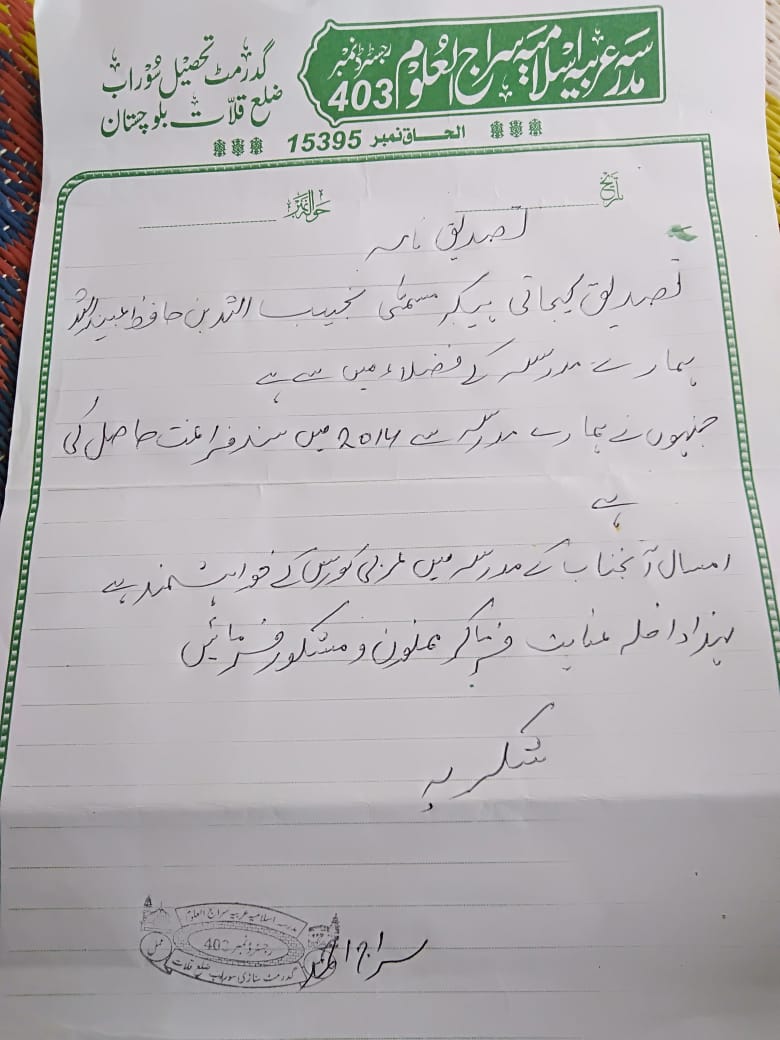 مدرسہ عربیہ اسلامیہ سراج العلوم
رجسٹرڈ نمبر
403
گدرمٹ تحصیل سوراب
ضلع قلات بلوچستان
الحاق نمبر 15395
تاریخ
حوالہ نمبر
تصدیق نامہ
تصدیق کیجاتی ہیکہ مسمٰی نجیب اللہ بن حافظ عبیداللہ
ہمارے مدرسہ کے فضلاء میں سے ہے
جنہوں نے ہمارے مدرسہ سے 2014 میں سند فراغت حاصل کی
ہے
امسال آنجناب کے مدرسہ میں عربی کورس کے خواہشمند ہے
لہذا داخلہ عنایت فرماکر ممنون و مشکور فرمائیں
شکریہ
سراج احمد
مدرسہ اسلامیہ عربیہ سراج العلوم
رجسٹرڈ نمبر 403
گدرمٹ سوراب ضلع قلات